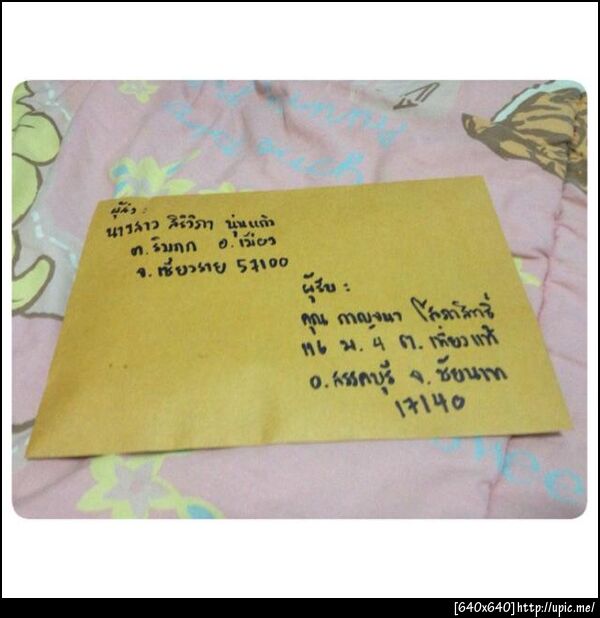 ผู้ส่ง :
นางสาว สิริวิภา นุ่นแก้ว
ต. ริมกก อ. เมือง
จ. เชียงราย 57100
ผู้รับ :
คุณ กาญจนา โสดาสิทธิ์
ม. 4 ต. เที่ยงแท้
อ. สรรคบุรี จ. ชัยนาท
17140
[640x640] http://upic.me/